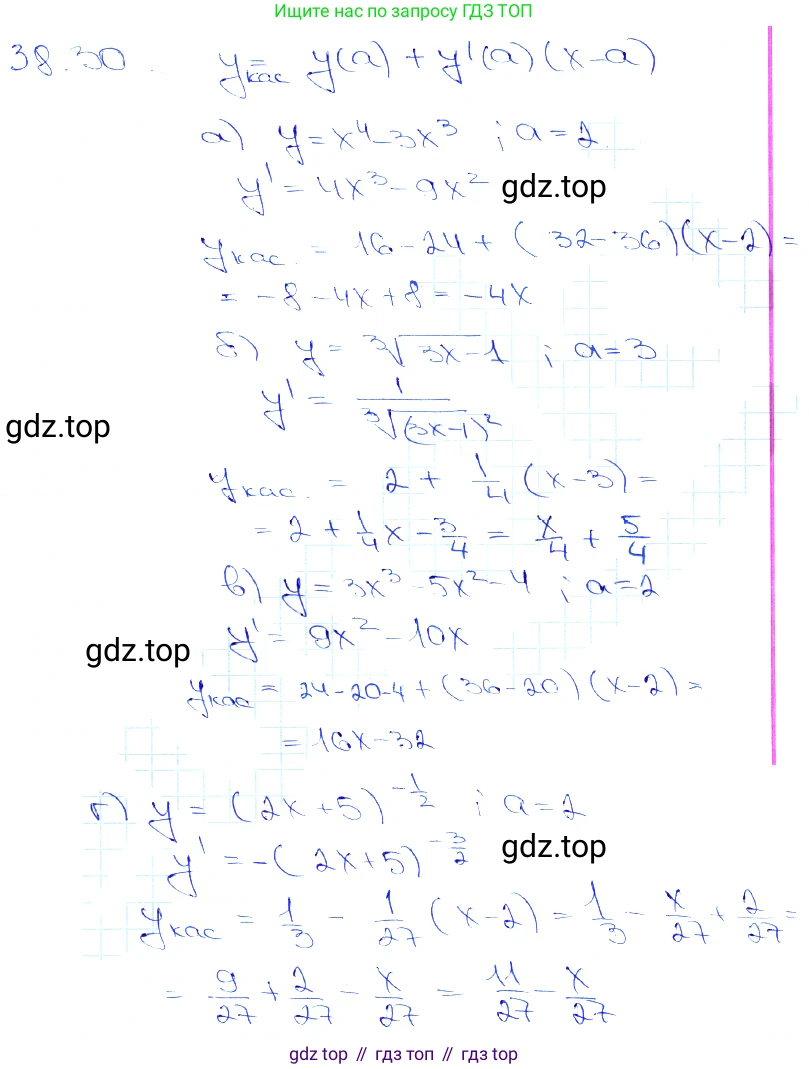 Ищите нас по запросу ГДЗ ТОП
38.30. y кас = y(a) + y'(a)(x-a)
а) y = x⁴-3x³ ; a=2
y' = 4x³-9x² gdz.top
y кас. = 16-24+(32-36)(x-2) =
= -8-4x+8 = -4x
б) y = ∛(3x-1) ; a=3
y' = 1/∛(3x-1)²
gdz.top
y кас. = 2 + 1/4 (x-3) =
= 2 + 1/4 x - 3/4 = x/4 + 5/4
в) y = 3x³-5x²-4 ; a=2
y' = 9x²-10x
gdz.top
y кас = 24-20-4+(36-20)(x-2) =
= 16x-32
г) y = (2x+5)^(-1/2) ; a=2
y' = -(2x+5)^(-3/2) gdz.top
y кас = 1/3 - 1/27 (x-2) = 1/3 - x/27 + 2/27 =
= 9/27 + 2/27 - x/27 = 11/27 - x/27
gdz top // гдз топ // gdz top